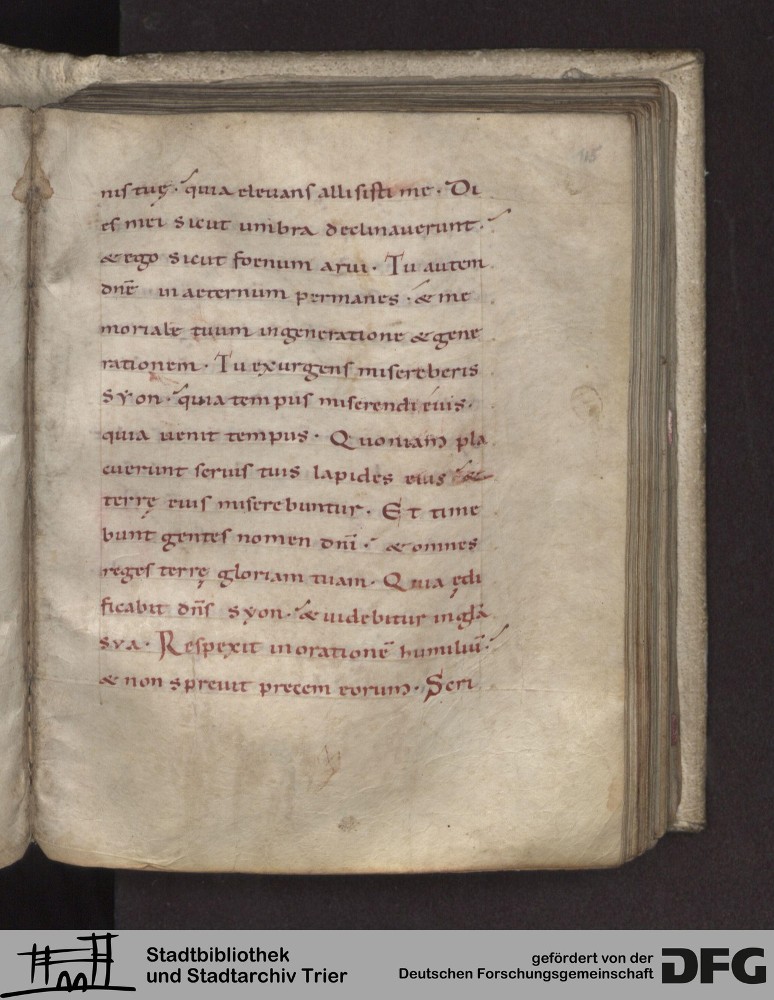 115
nis tuę · quia elevans allisisti me · Di
es mei sicut umbra declinaverunt ·
& ego sicut foenum arui · Tu autem
dnē in aeternum permanes · & me
moriale tuum in generatione & gene
rationem · Tu exurgens misereberis
syon · quia tempus miserendi eius ·
quia uenit tempus · Quoniam pla
cuerunt seruis tuis lapides eius · &
terrę eius miserebuntur · Et time
bunt gentes nomen dn̄i · & omnes
reges terrę gloriam tuam · Quia ędi
ficabit dn̄s syon · & uidebitur in glā
sua · Respexit in orationē humiliū ·
& non spreuit precem eorum · Scri
Stadtbibliothek
und Stadtarchiv Trier
gefördert von der
Deutschen Forschungsgemeinschaft
DFG